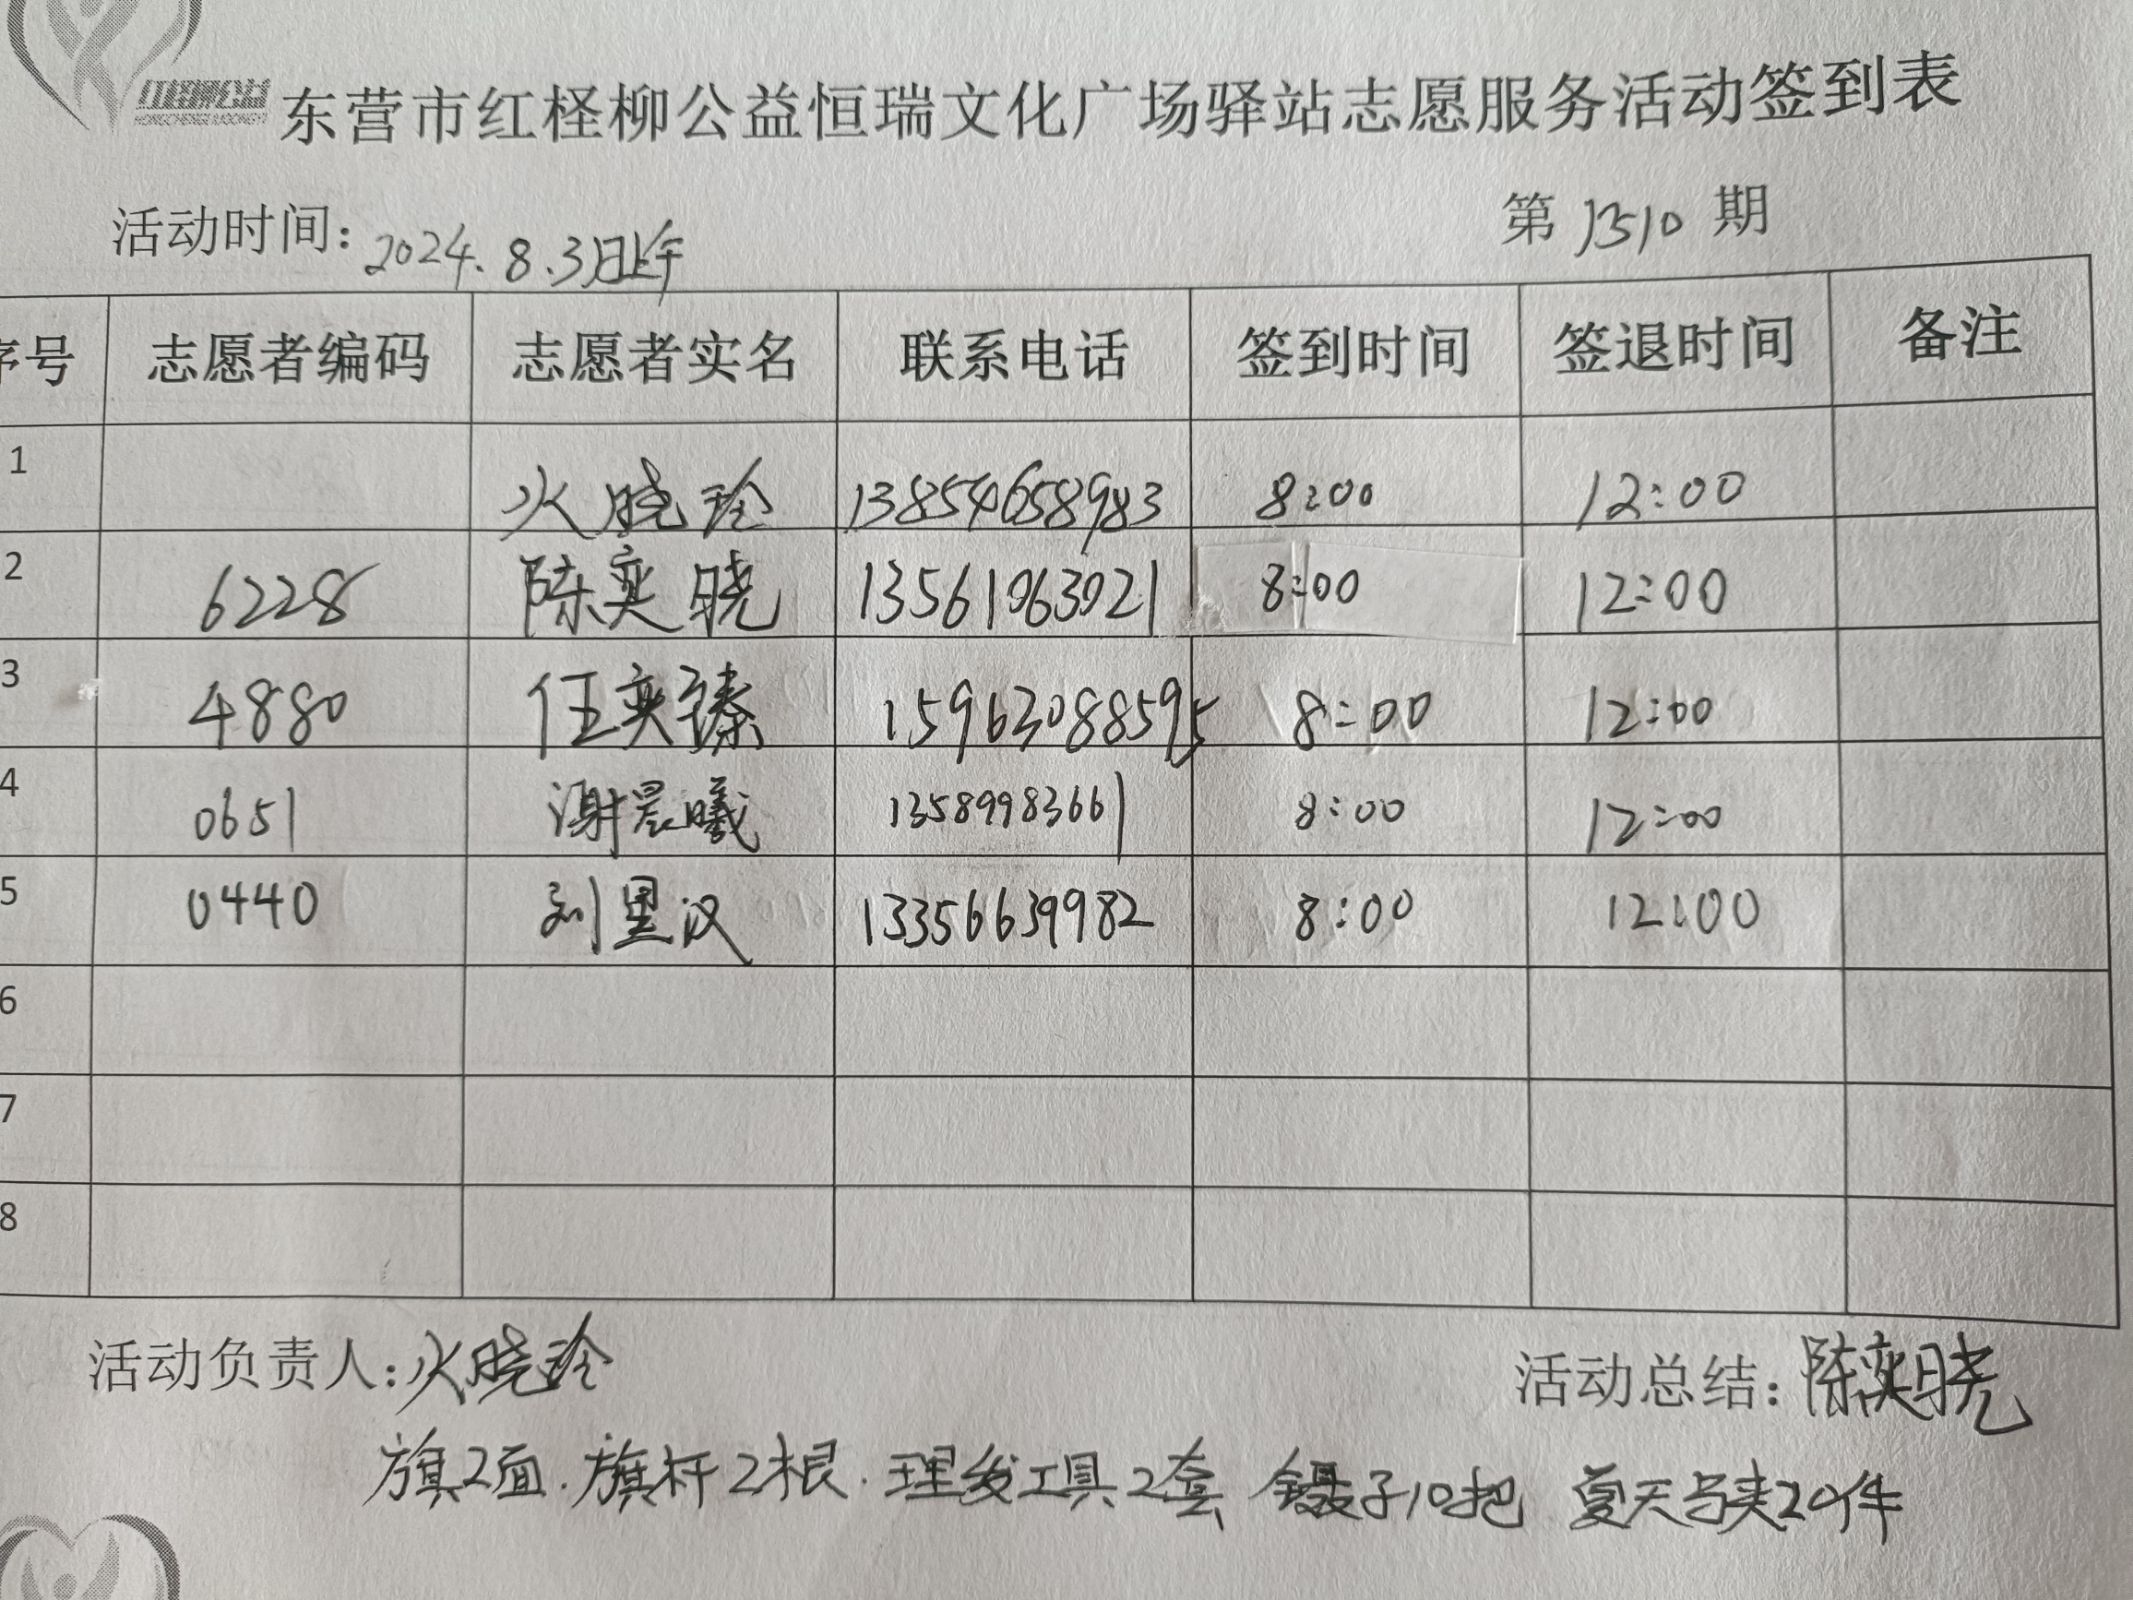 红柽柳公益
东营市红柽柳公益恒瑞文化广场驿站志愿服务活动签到表
活动时间：2024.8.3日上午 第1310期
序号 志愿者编码 志愿者实名 联系电话 签到时间 签退时间 备注
1 火晓玲 13854658983 8:00 12:00
2 6228 陈奕晓 13561063021 8:00 12:00
3 4880 任奕臻 15963088595 8:00 12:00
4 0651 谢晨曦 13589983661 8:00 12:00
5 0440 刘里汉 13356639982 8:00 12:00
6
7
8
活动负责人：火晓玲 活动总结：陈奕晓
旗2面.旗杆2根.理发工具2套 镊子10把 夏天马夹20件